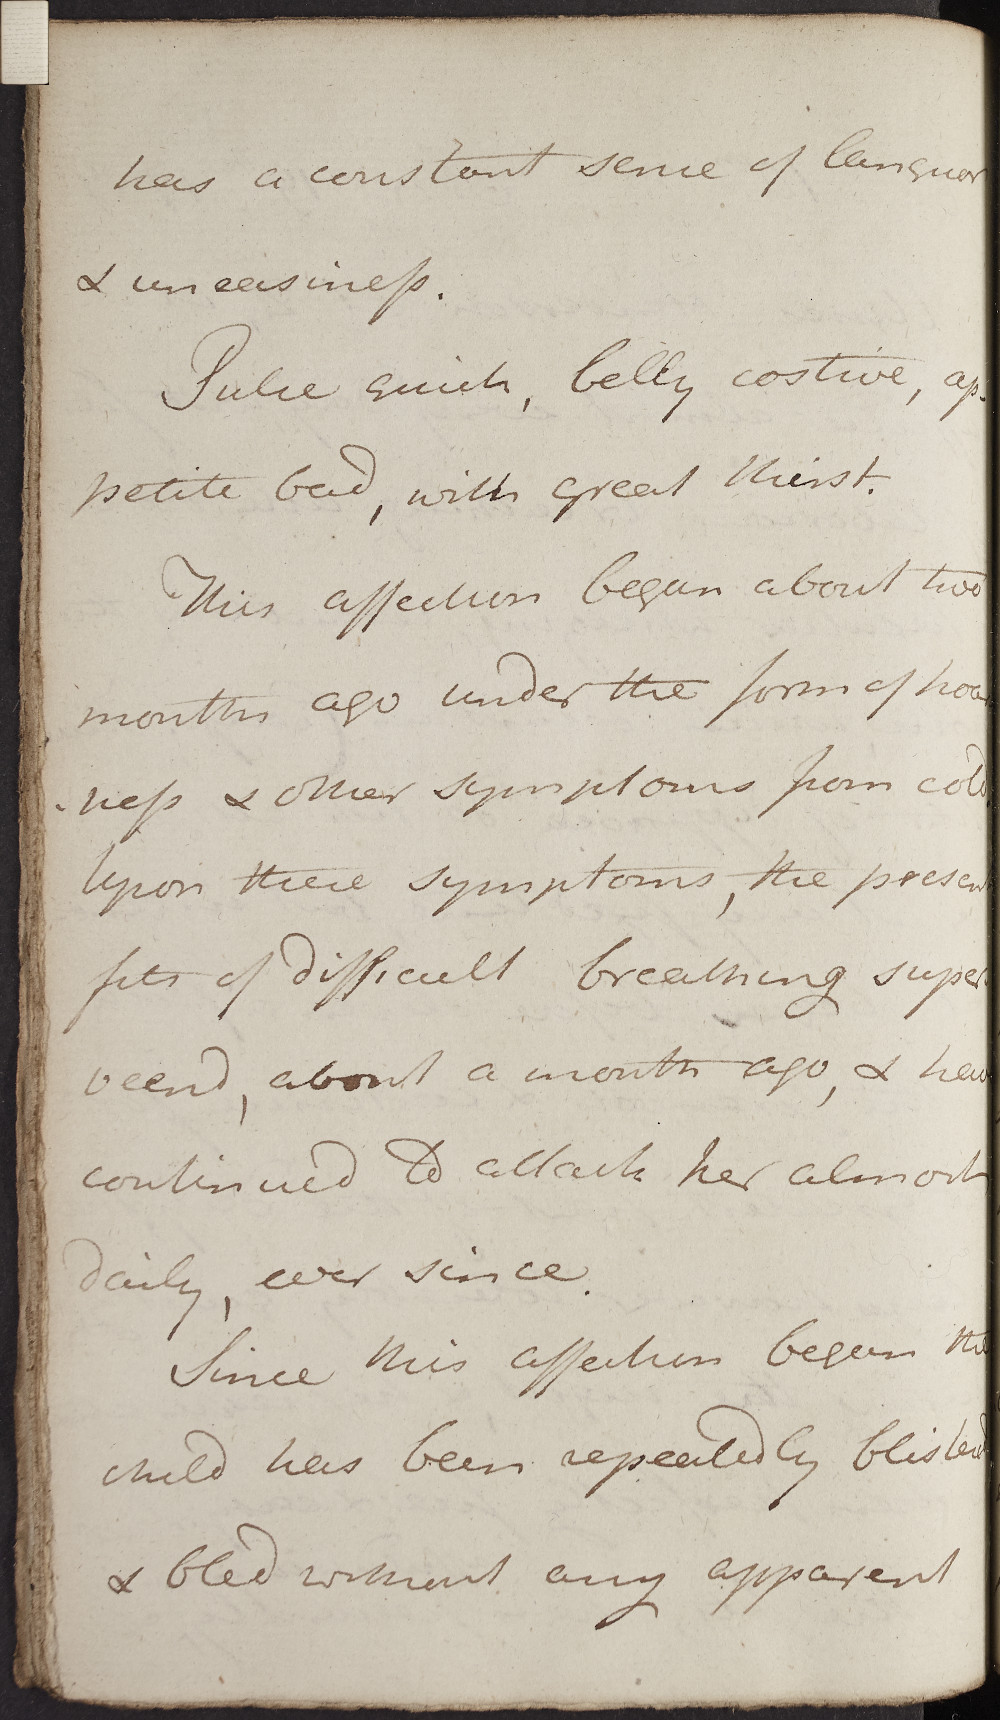 has a constant sense of languor
& uneasiness.
Pulse quick, belly costive, ap-
petite bad, with great thirst.
This affection began about two
months ago under the form of hoars
-ness & other symptoms from cold.
Upon these symptoms, the present
fits of difficult breathing super
veend, about a month ago, & have
continued to attack her almost
daily, ever since.
Since this affection began the
child has been repeatedly blisterd
& bled without any apparent